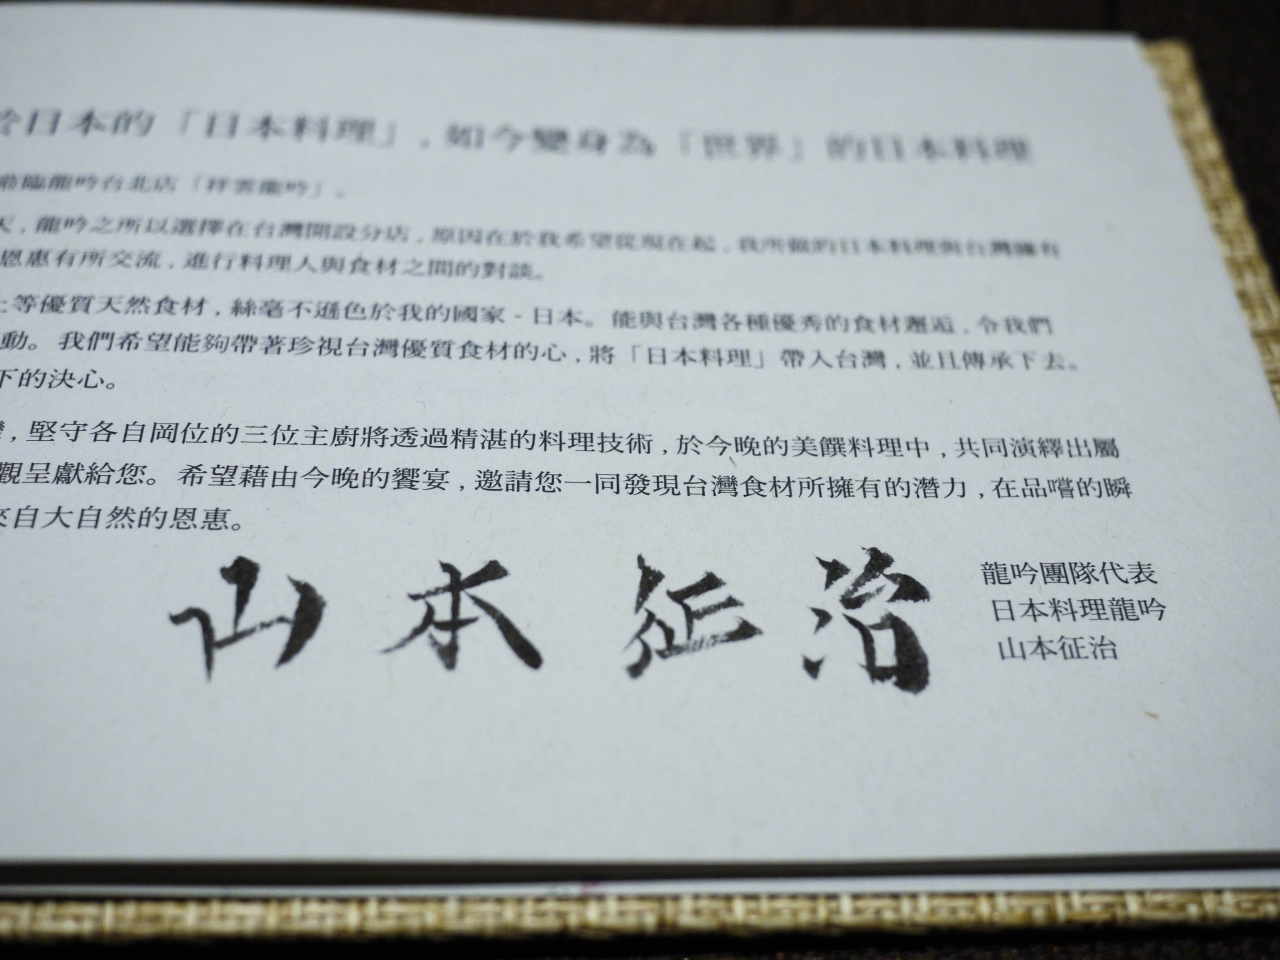 於日本的「日本料理」，如今變身為「世界」的日本料理
蒞臨龍吟台北店「祥雲龍吟」。
天，龍吟之所以選擇在台灣開設分店，原因在於我希望從現在起，我所做的日本料理與台灣擁有
恩惠有所交流，進行料理人與食材之間的對談。
上等優質天然食材，絲毫不遜色於我的國家－日本。能與台灣各種優秀的食材邂逅，令我們
動。我們希望能夠帶著珍視台灣優質食材的心，將「日本料理」帶入台灣，並且傳承下去。
下的決心。
，堅守各自岡位的三位主廚將透過精湛的料理技術，於今晚的美饌料理中，共同演繹出屬
觀呈獻給您。希望藉由今晚的饗宴，邀請您一同發現台灣食材所擁有的潛力，在品嚐的瞬
來自大自然的恩惠。
山本征治
龍吟團隊代表
日本料理龍吟
山本征治